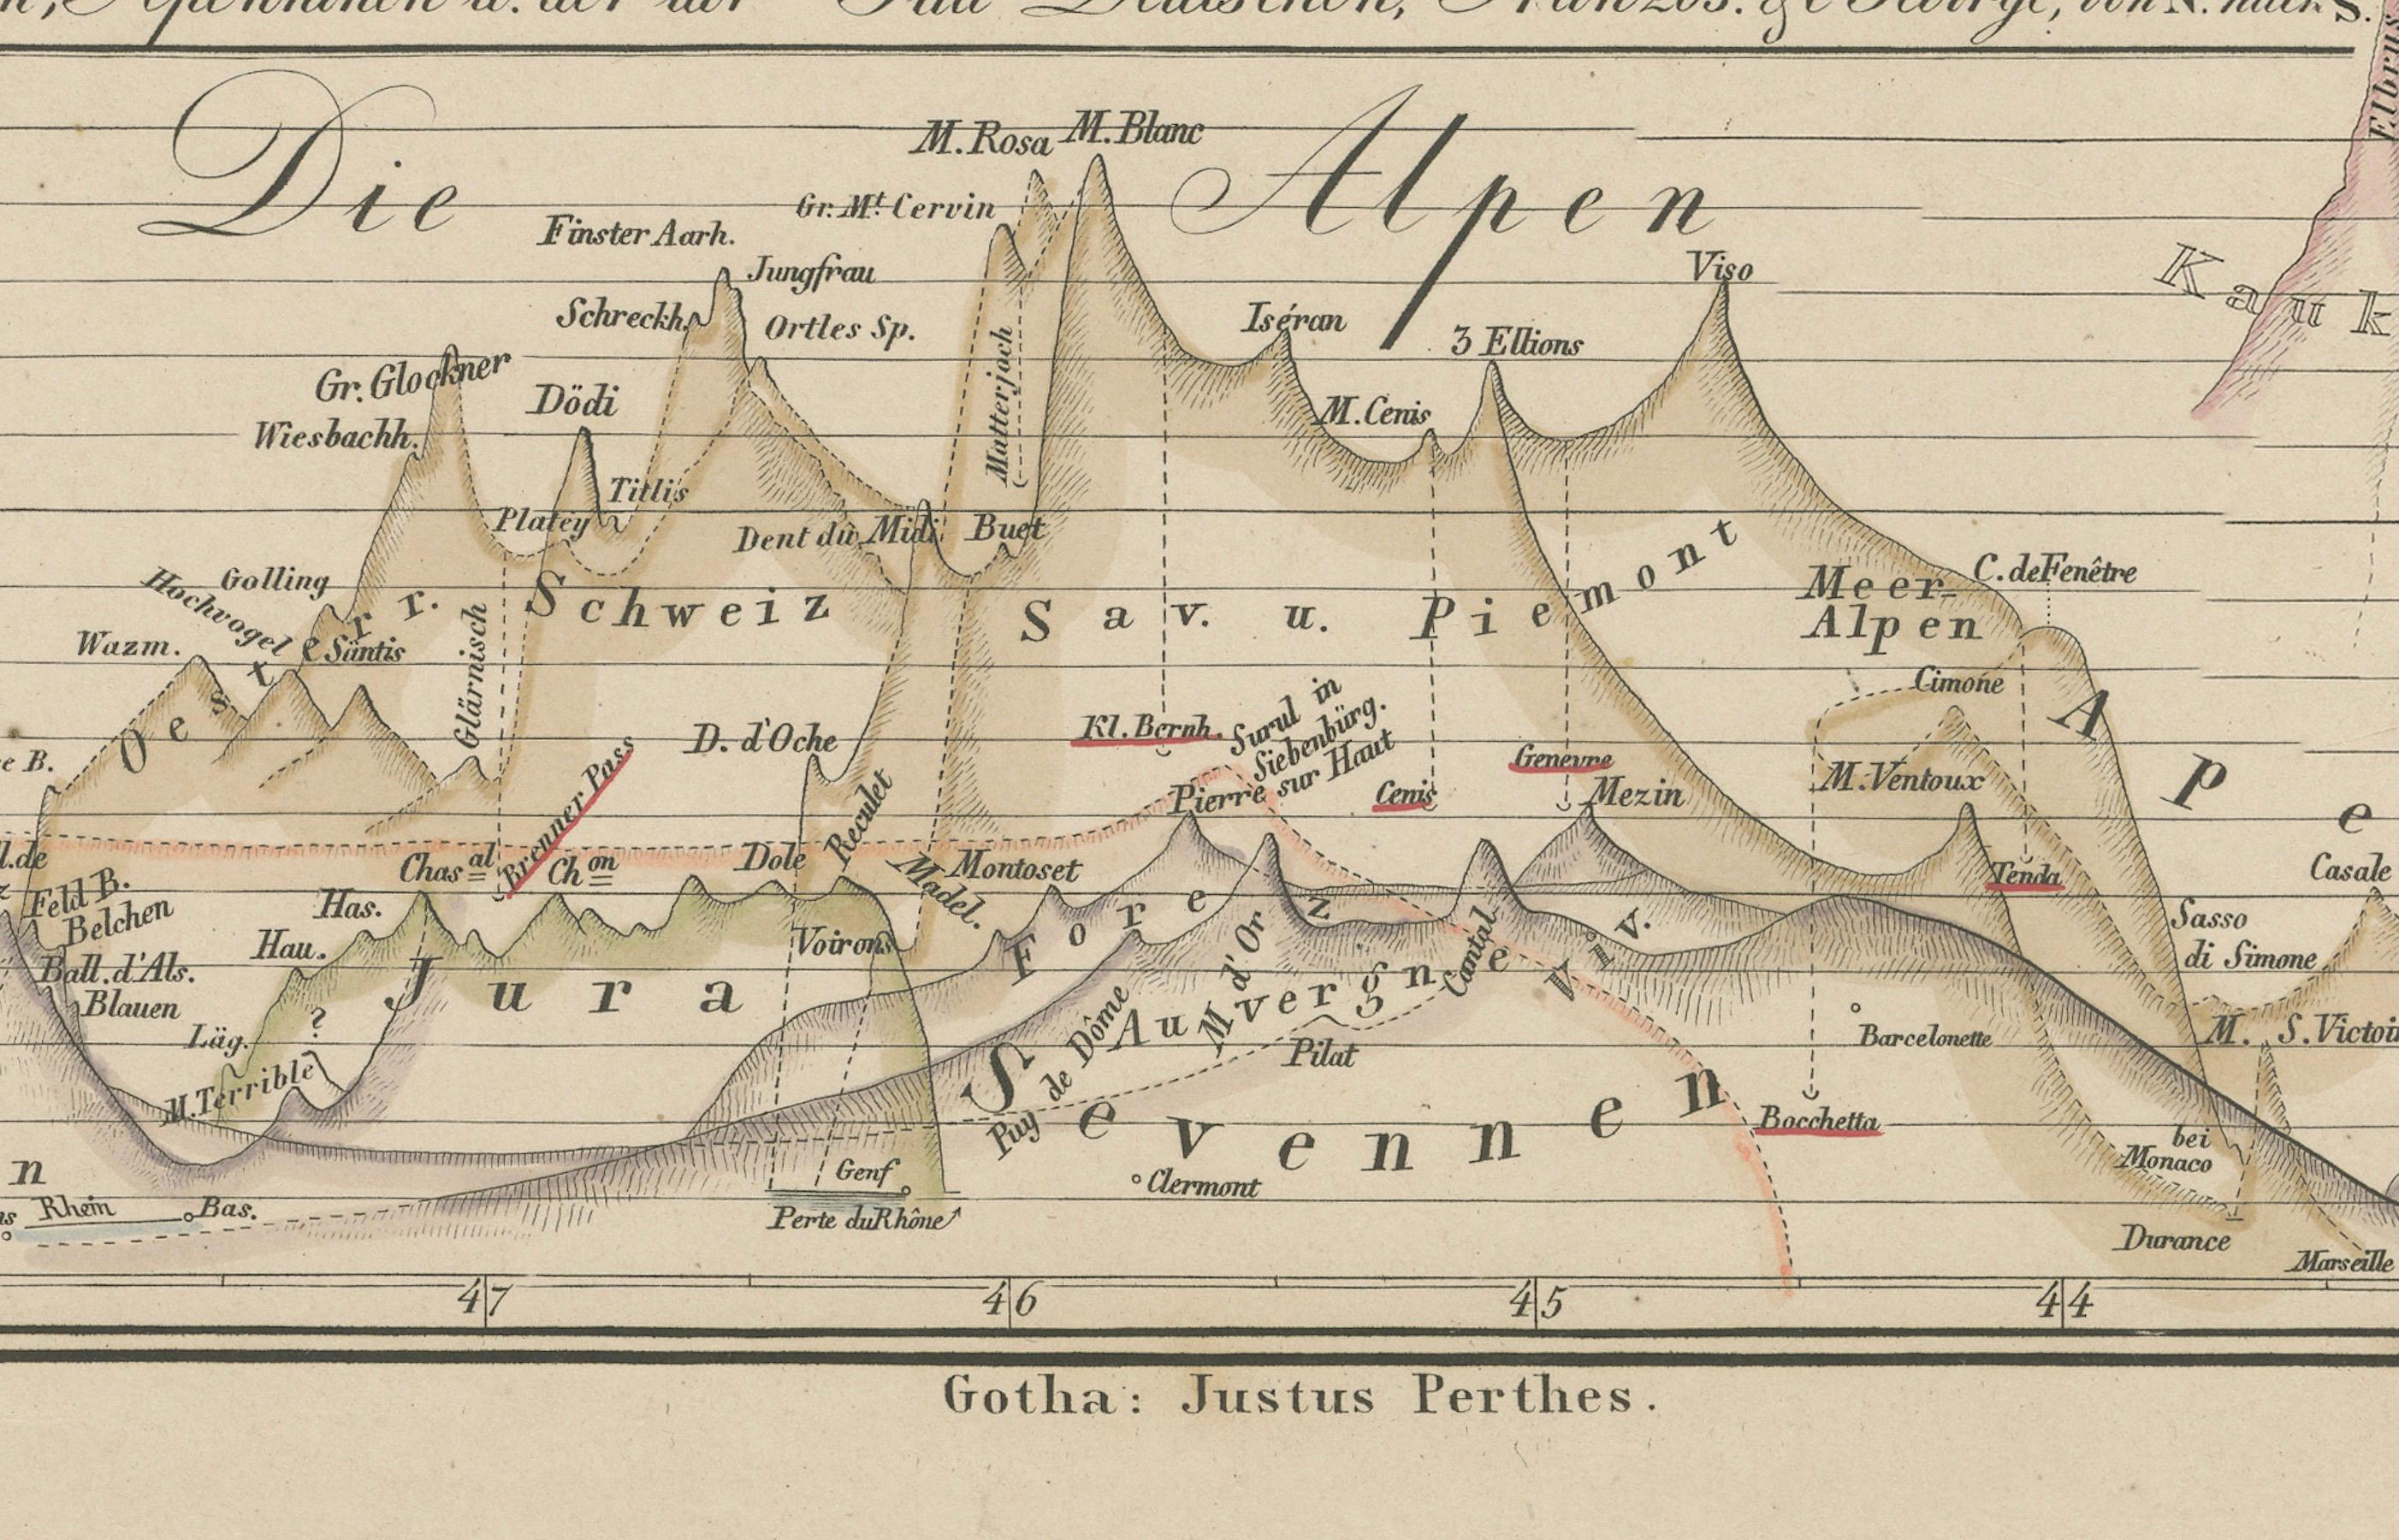 Die Alpen
M. Rosa
M. Blanc
Gr. Mt. Cervin
Finster Aarh.
Jungfrau
Schreckh.
Ortles Sp.
Elbrus
Kauk
Viso
Iséran
3 Ellions
Gr. Glockner
Dödi
Matterjoch
M. Cenis
Wiesbachh.
Titlis
Platey
Dent du Midi
Buet
Golling
Hochvogel
Wazm.
Säntis
Oesterr.
Schweiz
Sav. u. Piemont
Meer-
Alpen
C. de Fenêtre
Cimone
Glärnisch
D. d'Oche
Kl. Bernh.
Surul in
Siebenbürg.
Pierre sur Haut
Genevre
Cenis
Mezin
M. Ventoux
Ape
e B.
Brenner Pass
l. de
Chasal
Chon
Dole
Reculet
Madel.
Montoset
Tenda
Casale
Feld B.
Belchen
Has.
Hau.
Voirons
Forez
Viv.
Sasso
di Simone
Ball. d'Als.
Blauen
Jura
M. d'Or
Cantal
Auvergne
Läg.
?
M. Terrible
Puy de Dôme
Pilat
Barcelonette
M. S. Victoi
Sevennen
Bocchetta
bei
Monaco
n
Genf
Clermont
Rhein
Bas.
Perte du Rhône
Durance
Marseille
47
46
45
44
Gotha: Justus Perthes.